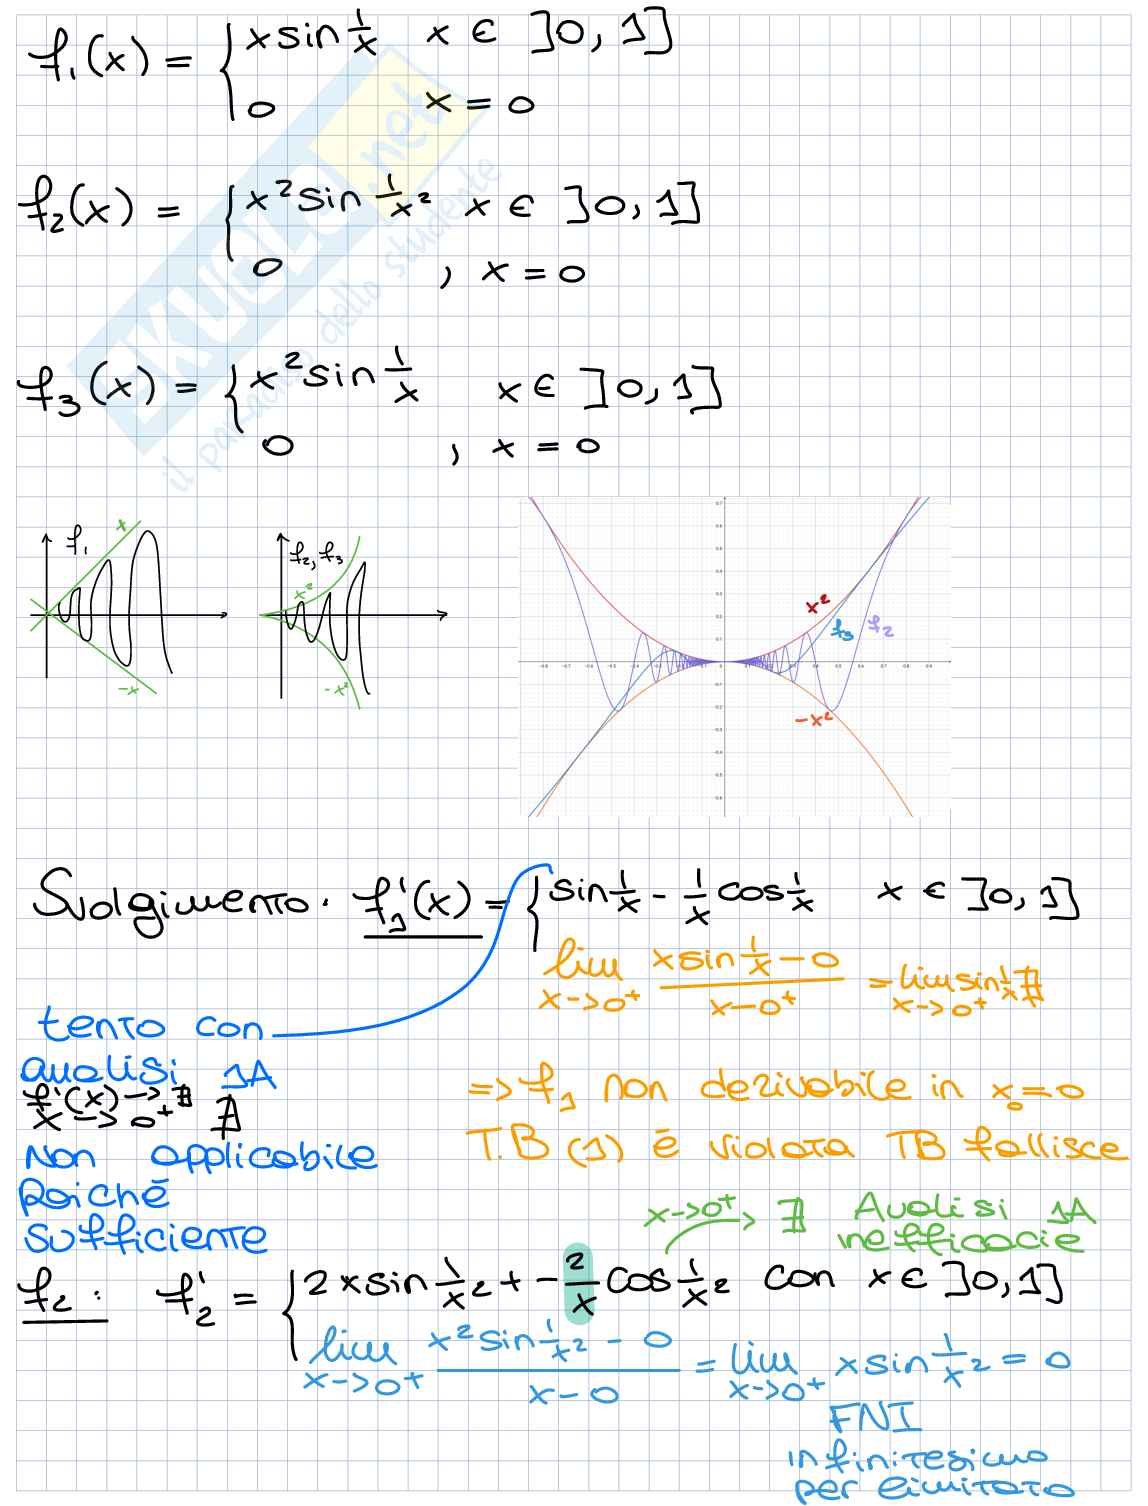 f₁(x) = { x sin 1/x   x ∈ ]0, 1]
0   x = 0
f₂(x) = { x² sin 1/x²   x ∈ ]0, 1]
0 , x = 0
f₃(x) = { x² sin 1/x   x ∈ ]0, 1]
0 , x = 0
SKUOLA.net
il paradiso dello studente
f₁
x
-x
f₂, f₃
x²
-x²
x²
f₃
f₂
-x²
Svolgimento. f₁'(x) = { sin 1/x - 1/x cos 1/x   x ∈ ]0, 1]
lim x->0⁺ (x sin 1/x - 0)/(x - 0⁺) = lim x->0⁺ sin 1/x ∄
tento con
analisi 1A
f'(x) -> ∄
x -> 0⁺ ∄
Non applicabile
poiché
sufficiente
=> f₁ non derivabile in x₀ = 0
T.B (1) è violata TB fallisce
x->0⁺ ∄ Analisi 1A
inefficacie
f₂: f₂' = { 2x sin 1/x² + - 2/x cos 1/x² con x ∈ ]0, 1]
lim x->0⁺ (x² sin 1/x² - 0)/(x - 0) = lim x->0⁺ x sin 1/x² = 0
FNI
infinitesimo
per limitato